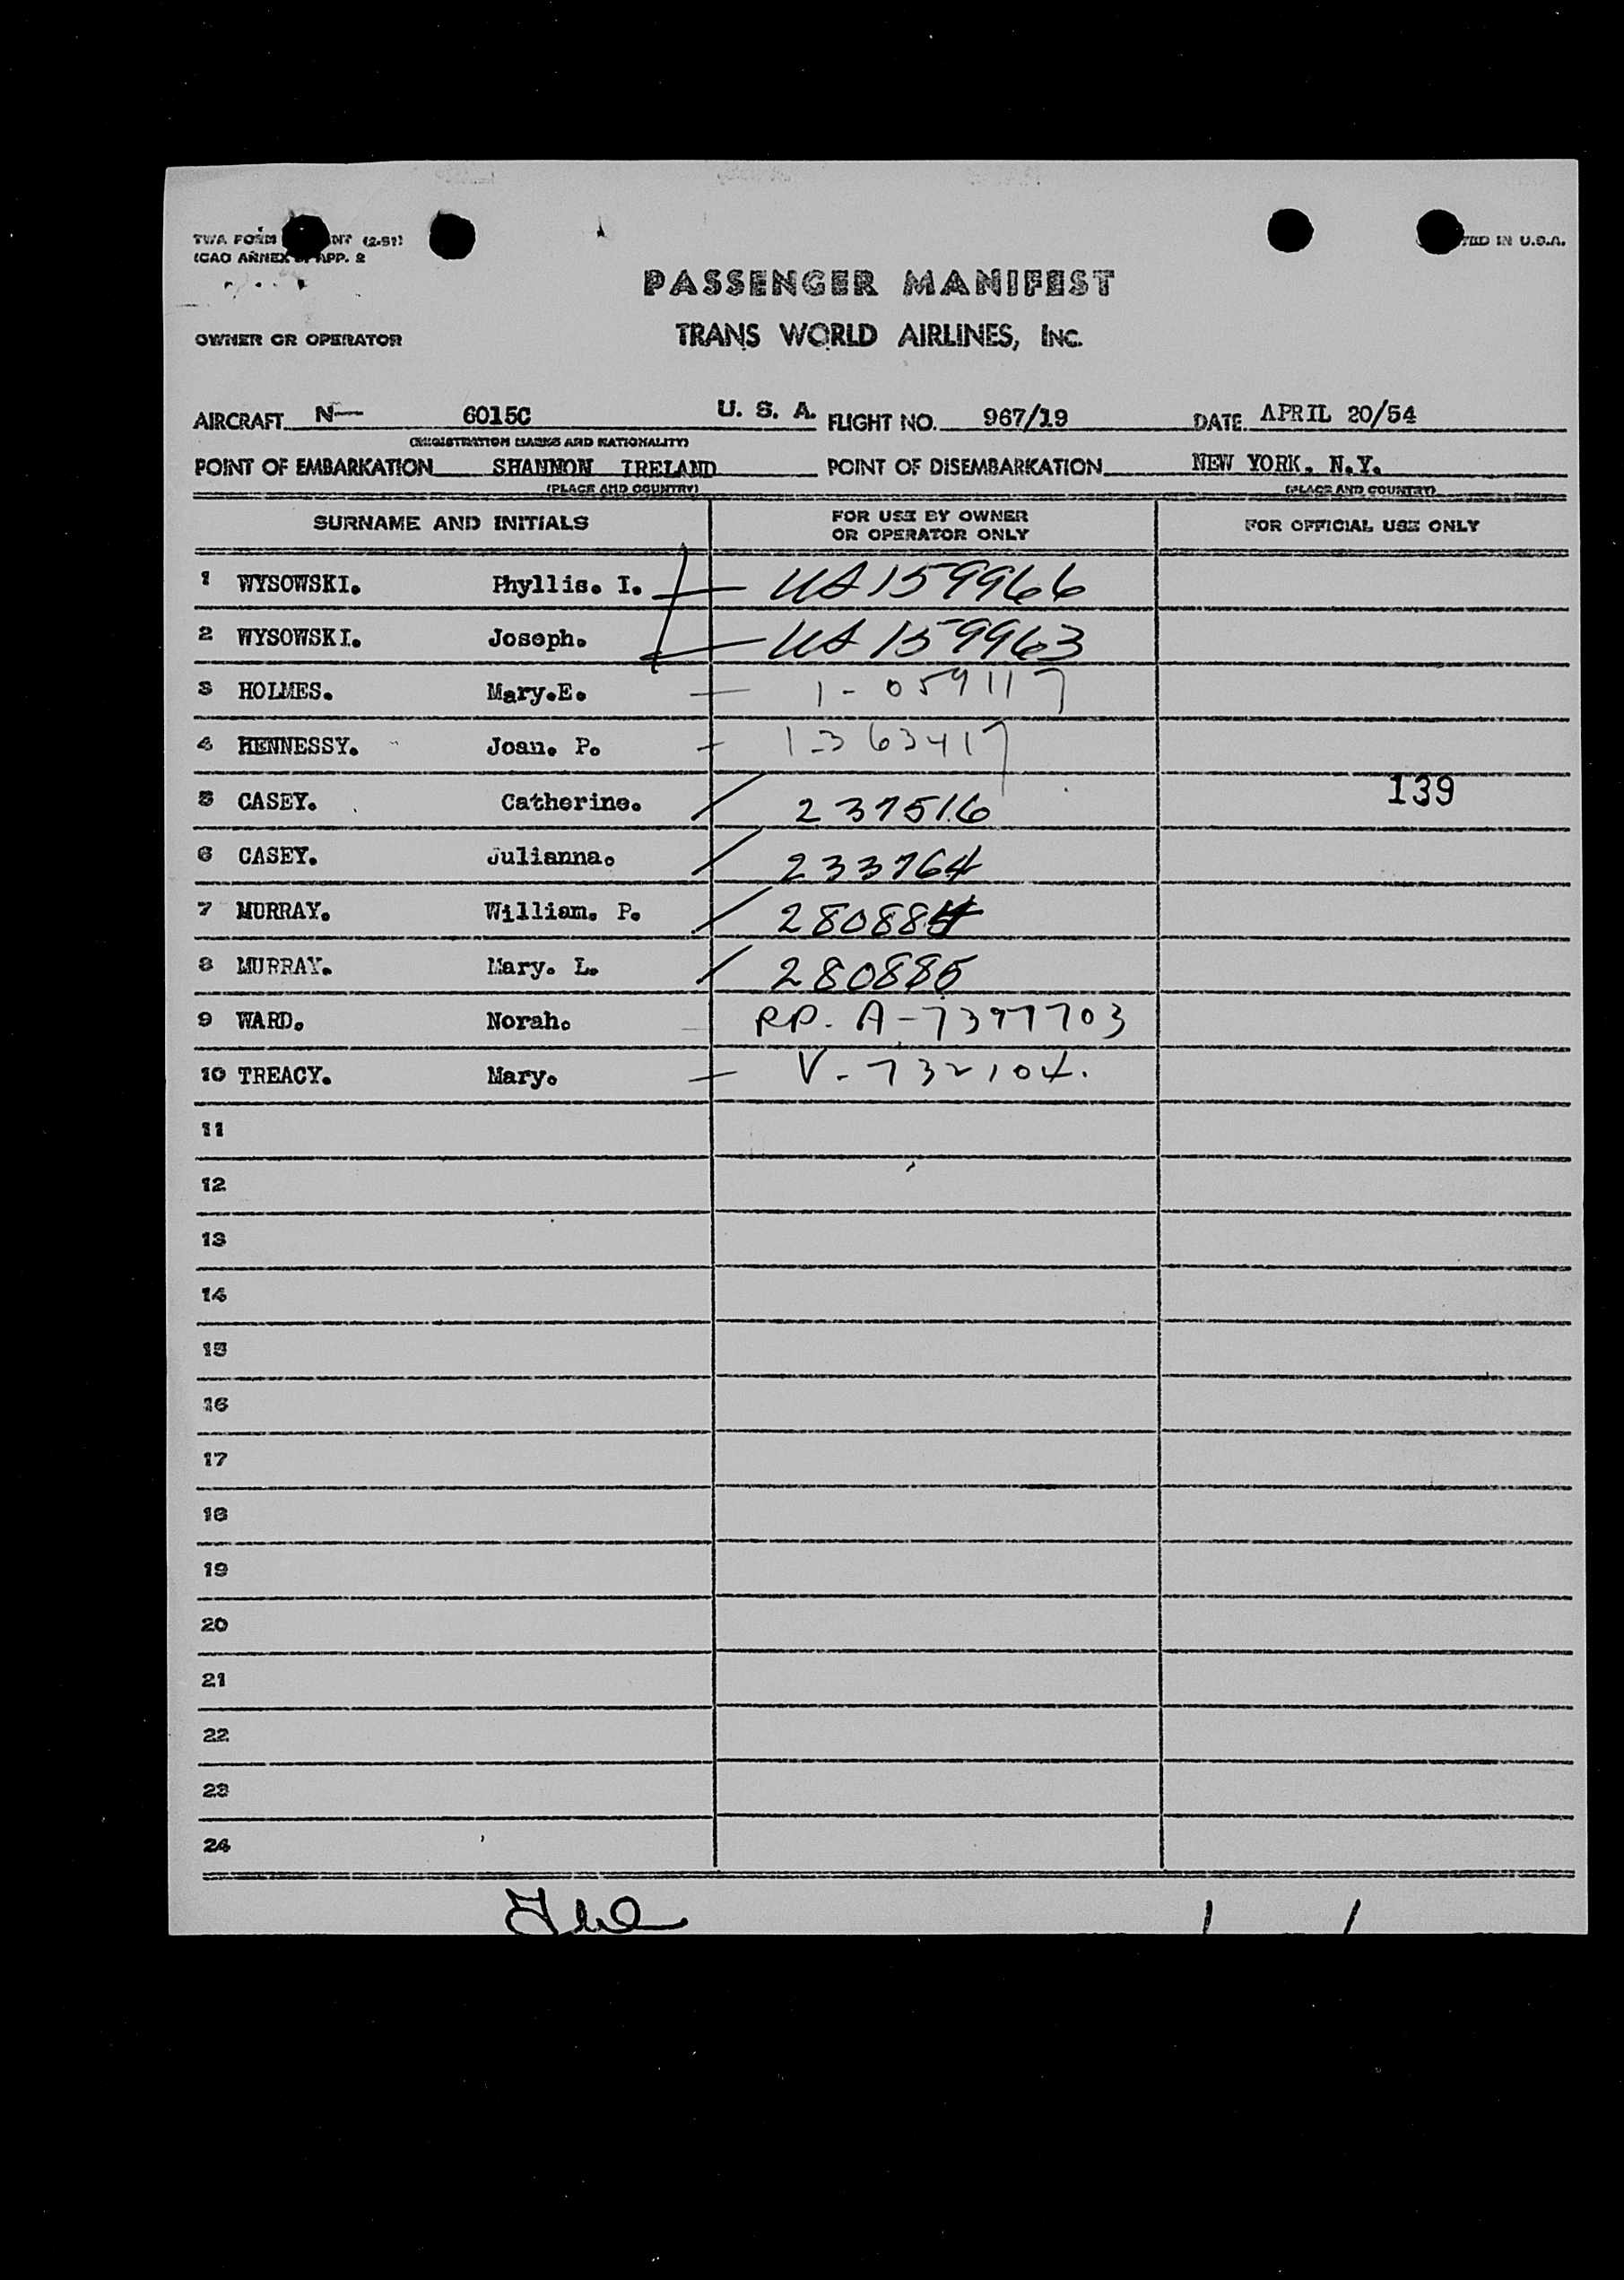 TWA FORM NT (2-51)
ICAO ANNEX 9, APP. 2
TED IN U.S.A.
PASSENGER MANIFEST
OWNER OR OPERATOR TRANS WORLD AIRLINES, INC.
AIRCRAFT N— 6015C U. S. A. FLIGHT NO. 967/19 DATE APRIL 20/54
(REGISTRATION MARKS AND NATIONALITY)
POINT OF EMBARKATION SHANNON IRELAND POINT OF DISEMBARKATION NEW YORK. N.Y.
(PLACE AND COUNTRY) (PLACE AND COUNTRY)
SURNAME AND INITIALS FOR USE BY OWNER OR OPERATOR ONLY FOR OFFICIAL USE ONLY
1 WYSOWSKI. Phyllis. I. — US 159966
2 WYSOWSKI. Joseph. — US 159963
3 HOLMES. Mary.E. — 1-059117
4 HENNESSY. Joan. P. — 1-363417
5 CASEY. Catherine. / 237516 139
6 CASEY. Julianna. / 233764
7 MURRAY. William. P. / 280884
8 MURRAY. Mary. L. / 280885
9 WARD. Norah. — RP. A-7397703
10 TREACY. Mary. — V-732104.
11
12
13
14
15
16
17
18
19
20
21
22
23
24